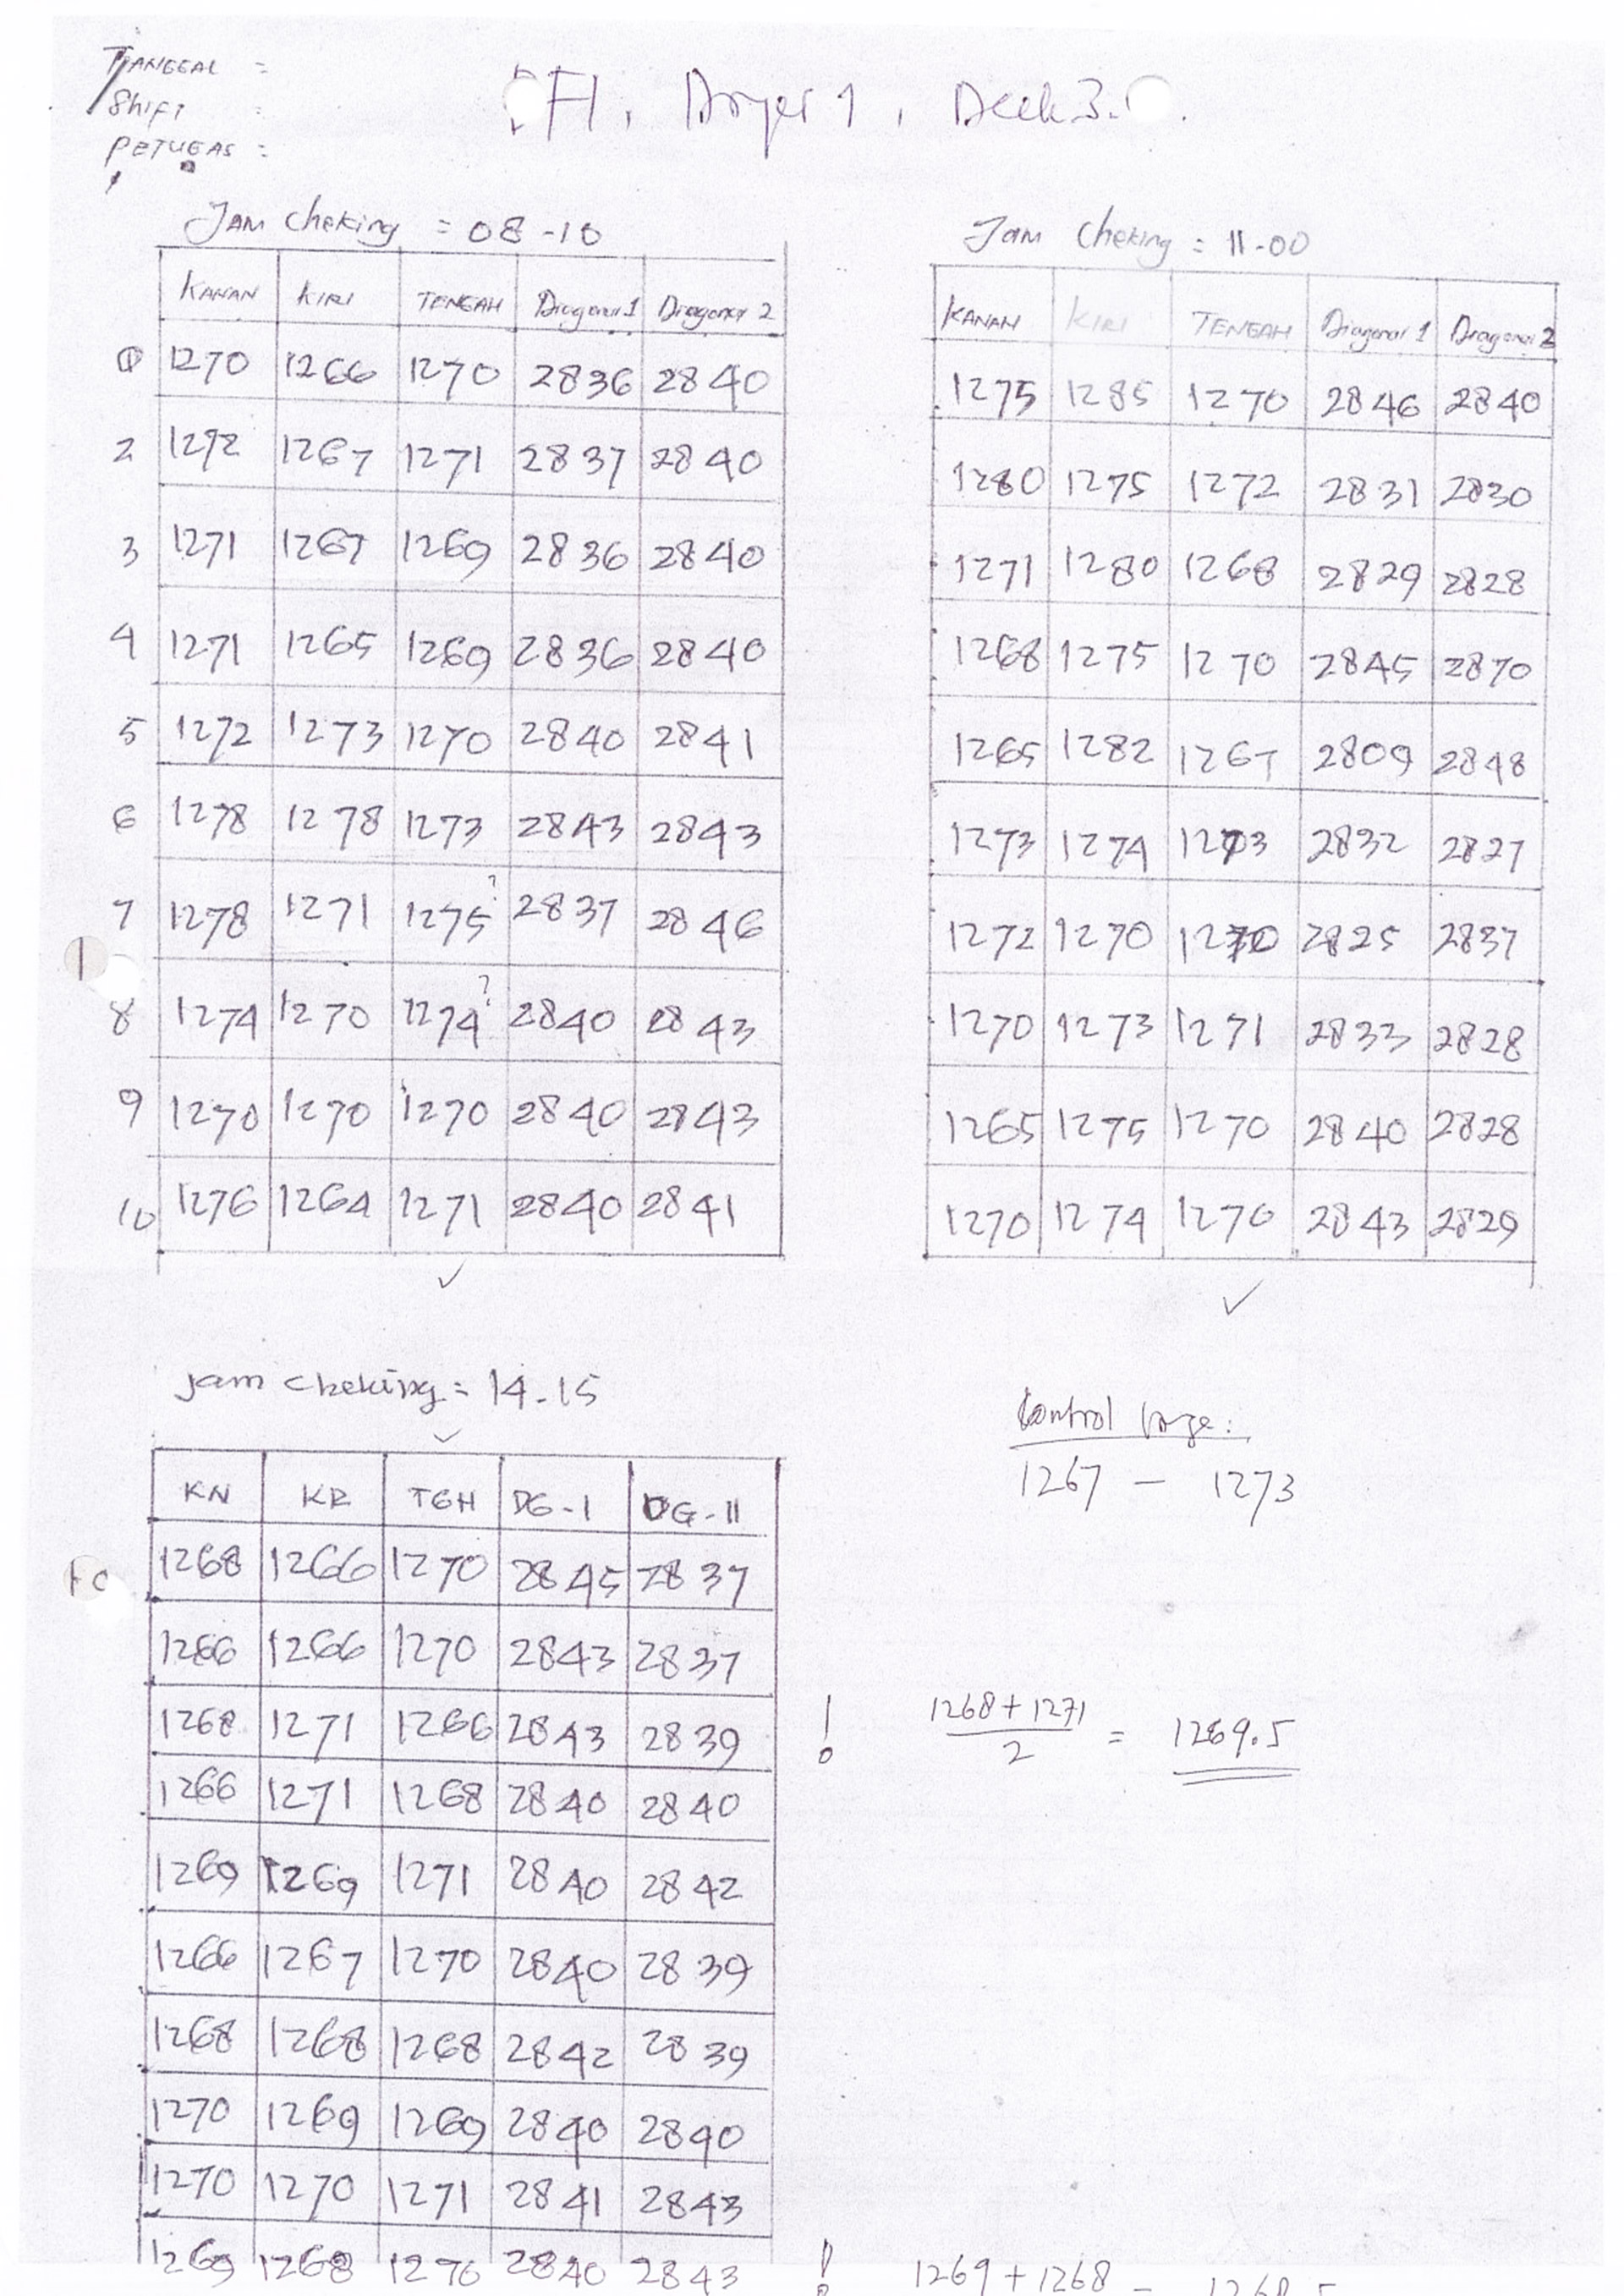 TANGGAL =
Shift :
PETUGAS :
FI, Dryer 1, Deck 3.
Jam cheking = 08-10
KANAN KIRI TENGAH Diagonal 1 Diagonal 2
1 1270 1266 1270 2836 2840
2 1272 1267 1271 2837 2840
3 1271 1267 1269 2836 2840
4 1271 1265 1269 2836 2840
5 1272 1273 1270 2840 2841
6 1278 1278 1273 2843 2843
7 1278 1271 1275? 2837 2846
8 1274 1270 1274? 2840 2843
9 1270 1270 1270 2840 2843
10 1276 1264 1271 2840 2841
✓
Jam cheking = 11-00
KANAN KIRI TENGAH Diagonal 1 Diagonal 2
1275 1285 1270 2846 2840
1280 1275 1272 2831 2830
1271 1280 1268 2829 2828
1268 1275 1270 2845 2870
1265 1282 1267 2809 2848
1273 1274 1273 2832 2827
1272 1270 1270 2825 2837
1270 1273 1271 2833 2828
1265 1275 1270 2840 2828
1270 1274 1270 2843 2829
✓
jam cheking = 14-15
✓
KN KR TGH DG-I DG-II
1268 1266 1270 2845 2837
1266 1266 1270 2843 2837
1268 1271 1266 2843 2839
1266 1271 1268 2840 2840
1269 1269 1271 2840 2842
1266 1267 1270 2840 2839
1268 1268 1268 2842 2839
1270 1269 1269 2840 2840
1270 1270 1271 2841 2843
1269 1268 1270 2840 2843
Control :
1267 – 1273
! 1268 + 1271 / 2 = 1269.5
! 1269 + 1268 =